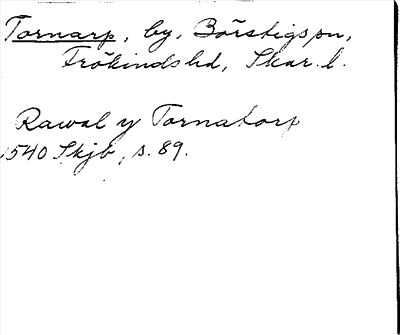 Tornarp, by, Börstigs sn,
Frökinds hd, Skar. l.
Rawal y Tornatorp
1540 Skjb, s. 89.